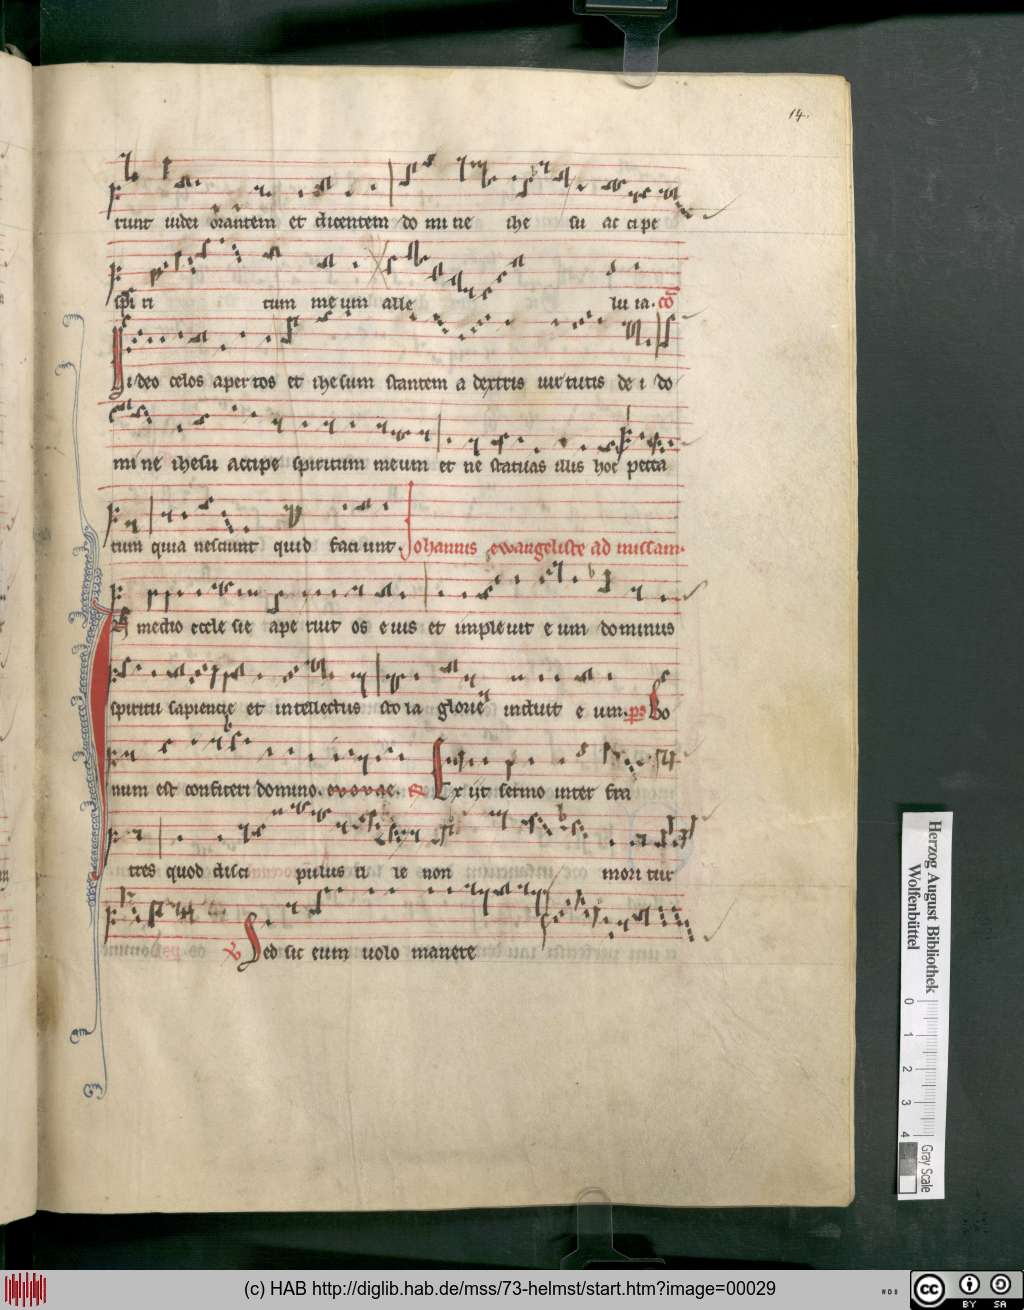 14.
runt uidei orantem et dicentem do mi ne ihe su ac ci pe
spi ri tum me um alle lu ia. co
Uideo celos aper tos et ihe sum stantem a dextris uir tutis de i do
mi ne ihesu accipe spiritum meum et ne statuas illis hoc pecca
tum quia nesciunt quid faci unt. Johannis ewangeliste ad missam.
In medio eccle sie ape ruit os e ius et impleuit e um dominus
spiritu sapiencie et intellectus sto la glorie induit e um. ps Bo
num est confiteri domino. evovae. Ex ijt sermo inter fra
tres quod disci pulus il le non mori tur
V Sed sic eum uolo manere
Herzog August Bibliothek
Wolfenbüttel
0 1 2 3 4
Gray Scale
(c) HAB http://diglib.hab.de/mss/73-helmst/start.htm?image=00029
cc BY SA